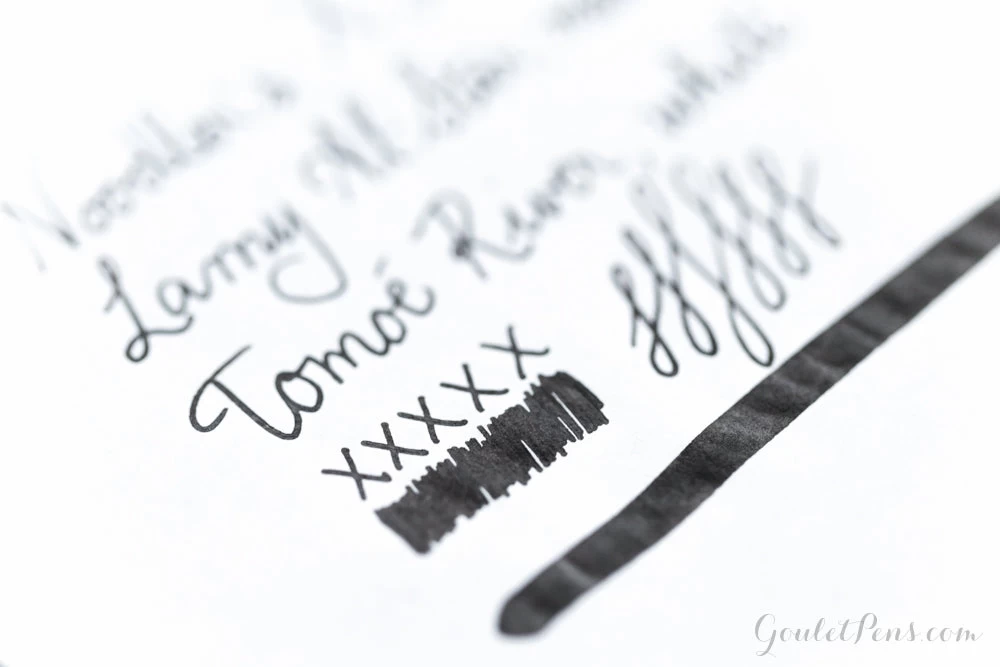 Noodler's
Lamy Al Star
Tomoé River white
xxxxx fffff
GouletPens.com